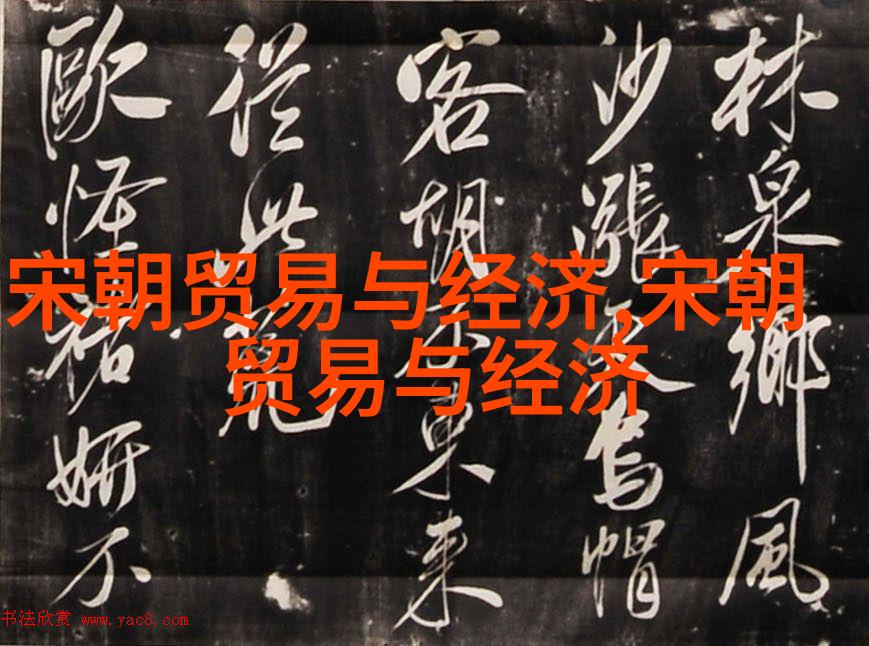 宋朝贸易与经济,宋朝
贸易与经济
林泉鄉風
沙漲烏帽
客胡不東來
從此
歐怪褚妍不
书法欣赏 www.yac8.com